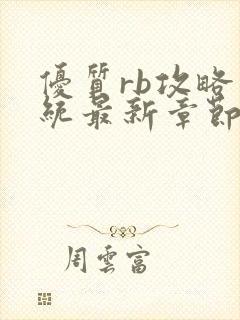 優質rb攻略
統最新章節
周雲富